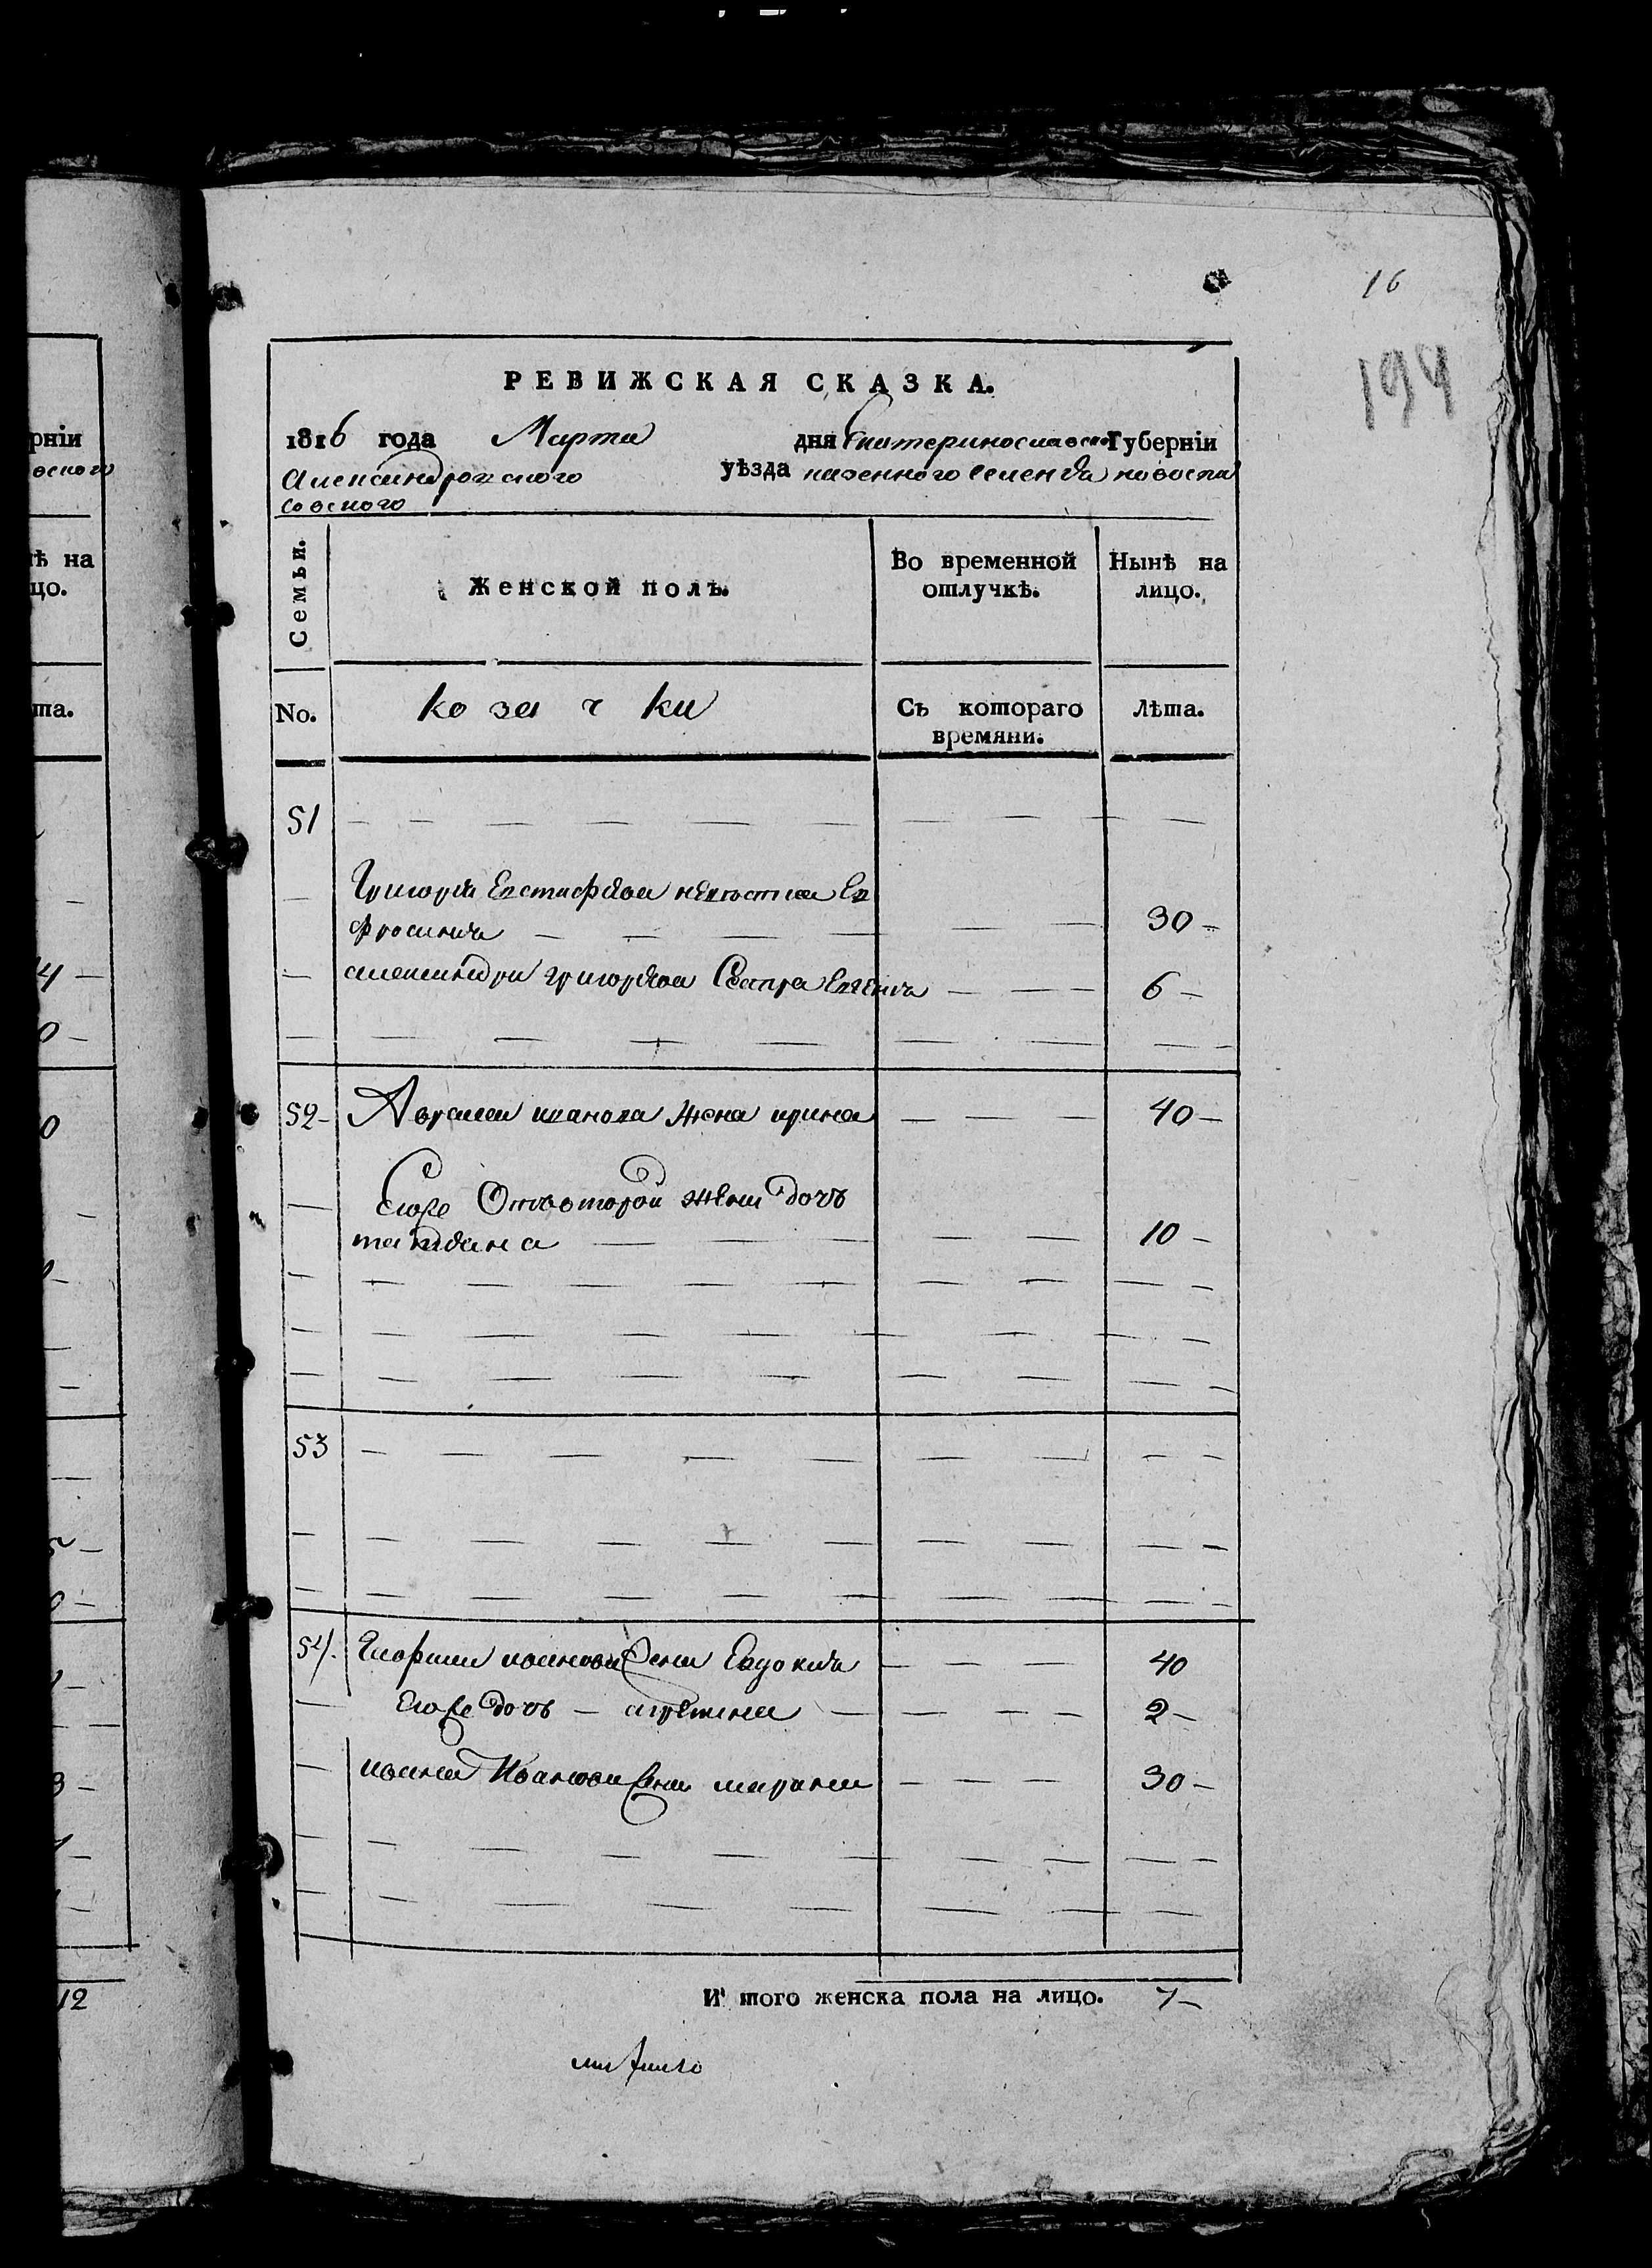 16
194
РЕВИЖСКАЯ СКАЗКА.
1816 года Марта дня Екатеринославской Губерніи
Александровского уѣзда казенного селенія новоспа
совского
Семьи. Женской полъ. Во временной отлучкѣ. Нынѣ на лицо.
No. козачки Съ котораго времяни. Лѣта.
51
Григорія Евстафіева невѣстка Ев
фросинія 30
александра григоріева Сестра Евгенія 6
52 Аврама иванова жена ирина 40
Егоже Отъ второй жены дочь
татіана 10
53
54 иванова жена Евдокия 40
Егоже дочь 2
ивана Иванова жена марина 30
И того женска пола на лицо. 7
рніи
вского
ѣ на
цо.
та.
4
0
0
12